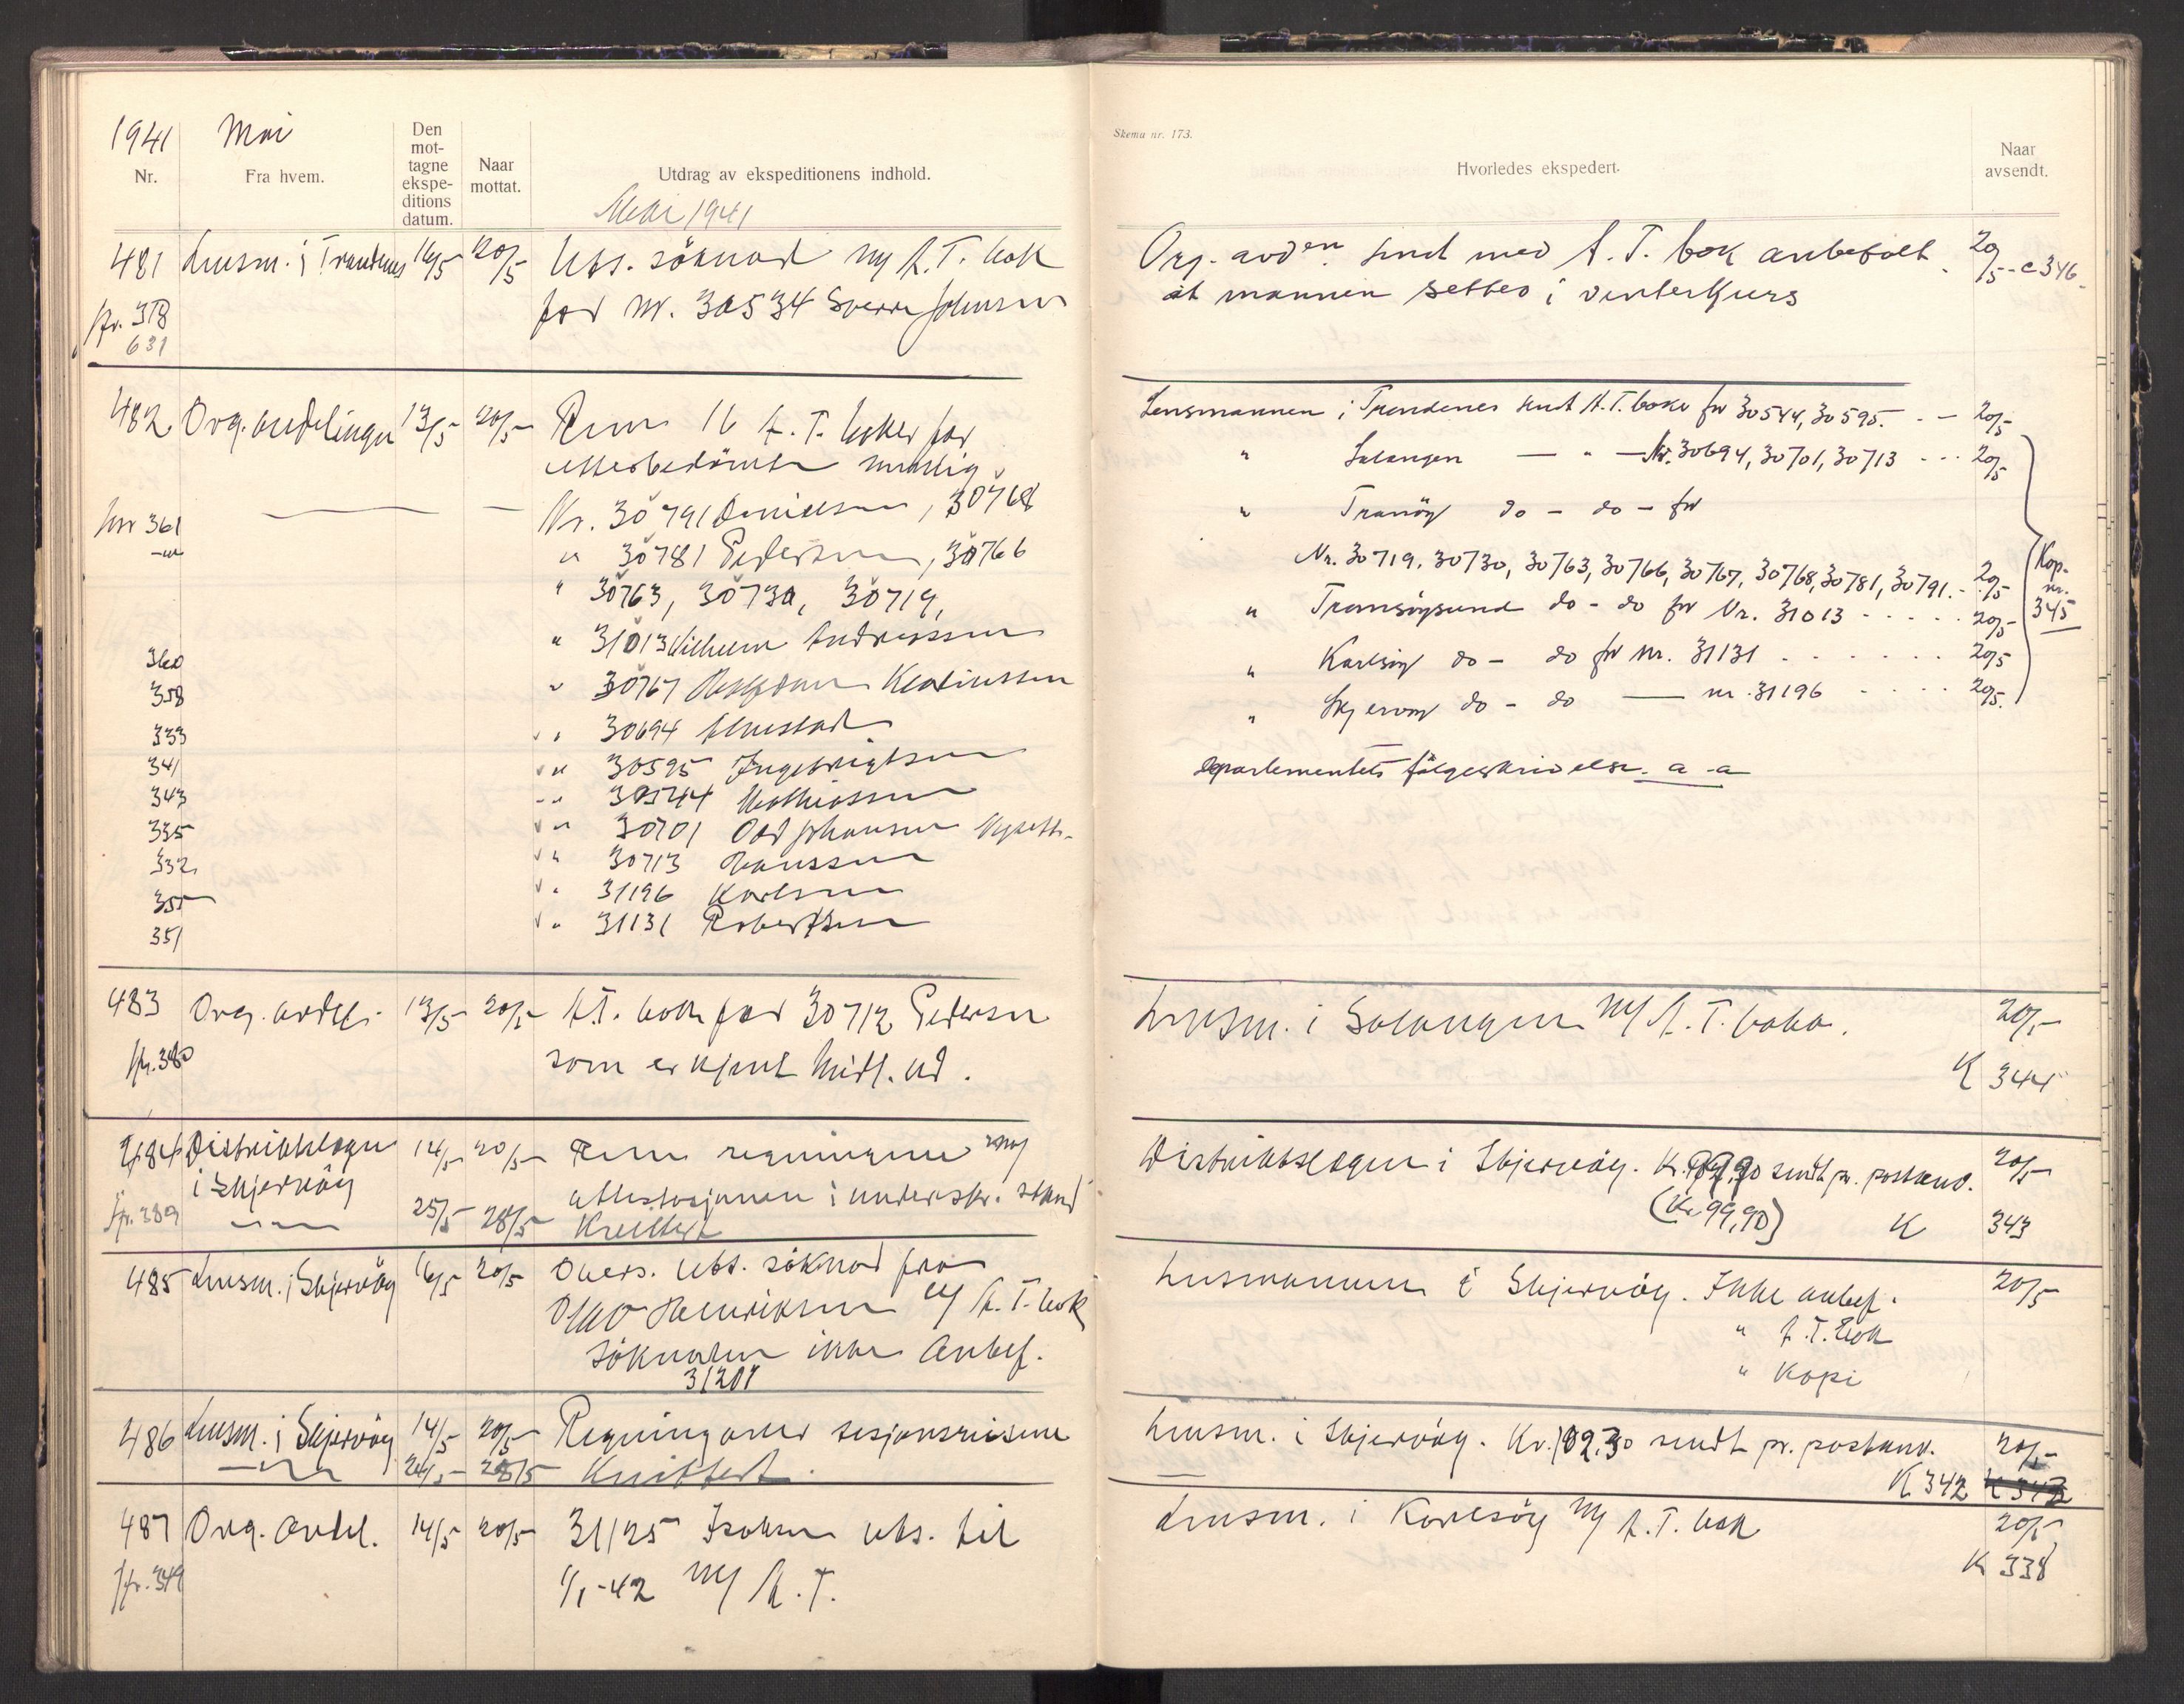 1941 Mai
Nr.
Fra hvem.
Den mot-
tagne
ekspe-
ditions
datum.
Naar
mottat.
Utdrag av ekspeditionens indhold.
Mai 1941
481 Lensm. i Trondenes 16/5 20/5 Uts. söknad m/ A.T. bok
for nr. 30534 Sverre Johnsen
fr. 378
631
482 Org. avdelingen 13/5 20/5 16 A.T. böker for
Nr. 30791 Danielsen, 30768
361
" 30781 Pedersen, 30766
" 30763, 30730, 30719,
" 31013 Vilhelm Andreassen
360
" 30767 Kladiussen
358
" 30694 Elvestad
333
" 30595 Ingebrigtsen
341
" 30544 Mathiassen
343
" 30701 Odd Johansen
335
" 30713 Hanssen
332
" 31196 Karlsen
355
" 31131 Robertsen
351
483 Org. avdel. 13/5 20/5 A.T. bok for 30712 Pedersen
som er kjent Midl. ud.
fr. 380
484 Distriktslegen 14/5 20/5 Rem regningene
i Skjervöy
attestasjonen i underskr. stand
fr. 389 25/5 28/5 Kvittert
485 Lensm. i Skjervöy 16/5 20/5 Overs. uts. söknad fra
Henriksen m/ A.T. bok
söknaden ikke anbef.
31201
486 Lensm. i Skjervöy 14/5 20/5 Regning over sesjonsreisene
24/5 28/5 Kvittert.
487 Org. avdel. 14/5 20/5 31125 Isaksen uts. til
1/1-42 m/ A.T.
fr. 349
Skema nr. 173.
Hvorledes ekspedert.
Naar
avsendt.
Org. avden. sendt med A.T. bok anbefalt 20/5 - c 346.
at mannen settes i vinterkurs
Lensmannen i Trondenes sendt A.T. boka for 30544, 30595. - 20/5
" Salangen — " — Nr. 30694, 30701, 30713 - - - 20/5
" Tranöy do - do - for
Nr. 30719, 30730, 30763, 30766, 30767, 30768, 30781, 30791. - 20/5
Kop.
nr.
345
" Tromsöysund do - do for Nr. 31013 - - - - - 20/5
" Karlsöy do - do for nr. 31131 - - - - - - 20/5
" Skjervöy do - do — nr. 31196 - - - - 20/5.
Departementets fölgeskrivelse a-a
Lensm. i Salangen m/ A.T. boka. 20/5
K 344
Distriktslegen i Skjervöy. Kr. 99,90 sendt pr. postanv. 20/5
(Kr 99,90) K 343
Lensmannen i Skjervöy. Ikke anbef. 20/5
" A.T. bok
" Kopi
Lensm. i Skjervöy. Kr. 182,30 sendt pr. postanv. 20/5
K 342 K 342
Lensm. i Karlsöy m/ A.T. bok 20/5
K 338